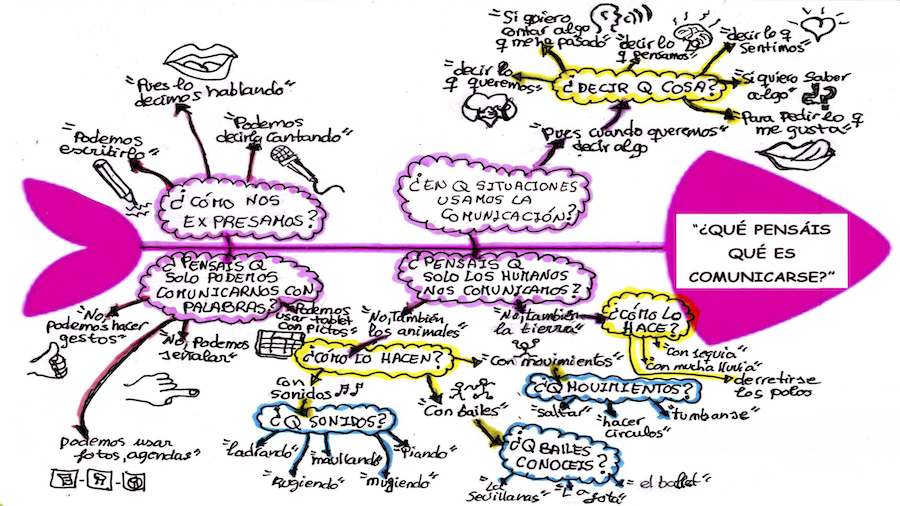 "¿QUÉ PENSÁIS
QUÉ ES
COMUNICARSE?"
¿CÓMO NOS
EXPRESAMOS?
"Podemos
escribirlo"
"Pues lo
decimos hablando"
"Podemos
decirla cantando"
¿EN Q SITUACIONES
USAMOS LA
COMUNICACIÓN?
"Pues cuando queremos"
decir algo
¿DECIR Q COSA?
"decir lo
q queremos"
"Si quiero
contar algo
q me ha pasado"
"decir lo
q pensamos"
"decir lo q
Sentimos"
"Si quiero saber
algo"
"Para Pedir lo q
me gusta"
¿PENSAIS Q
SOLO PODEMOS
COMUNICARNOS CON
PALABRAS?
"No,
podemos hacer
gestos"
"No, Podemos
señalar"
Podemos usar
fotos, agendas"
"Podemos
usar tablet
con Pictos"
¿PENSAIS Q
SOLO LOS HUMANOS
NOS COMUNICAMOS?
"No, también
los animales"
¿CÓMO LO HACEN?
Con
sonidos
¿Q SONIDOS?
"ladrando"
"Rugiendo"
"maullando"
"mugiendo"
"Piando"
"Con bailes"
¿Q BAILES
CONOCEIS?
"La
Sevillanas"
"La
Jota"
"el ballet"
"Con movimientos"
¿Q MOVIMIENTOS?
"saltar"
"hacer
círculos"
"tumbarse"
"No, también
la tierra"
¿CÓMO LO
HACE?
"Con sequia"
"con mucha lluvia"
derretirse
los polos